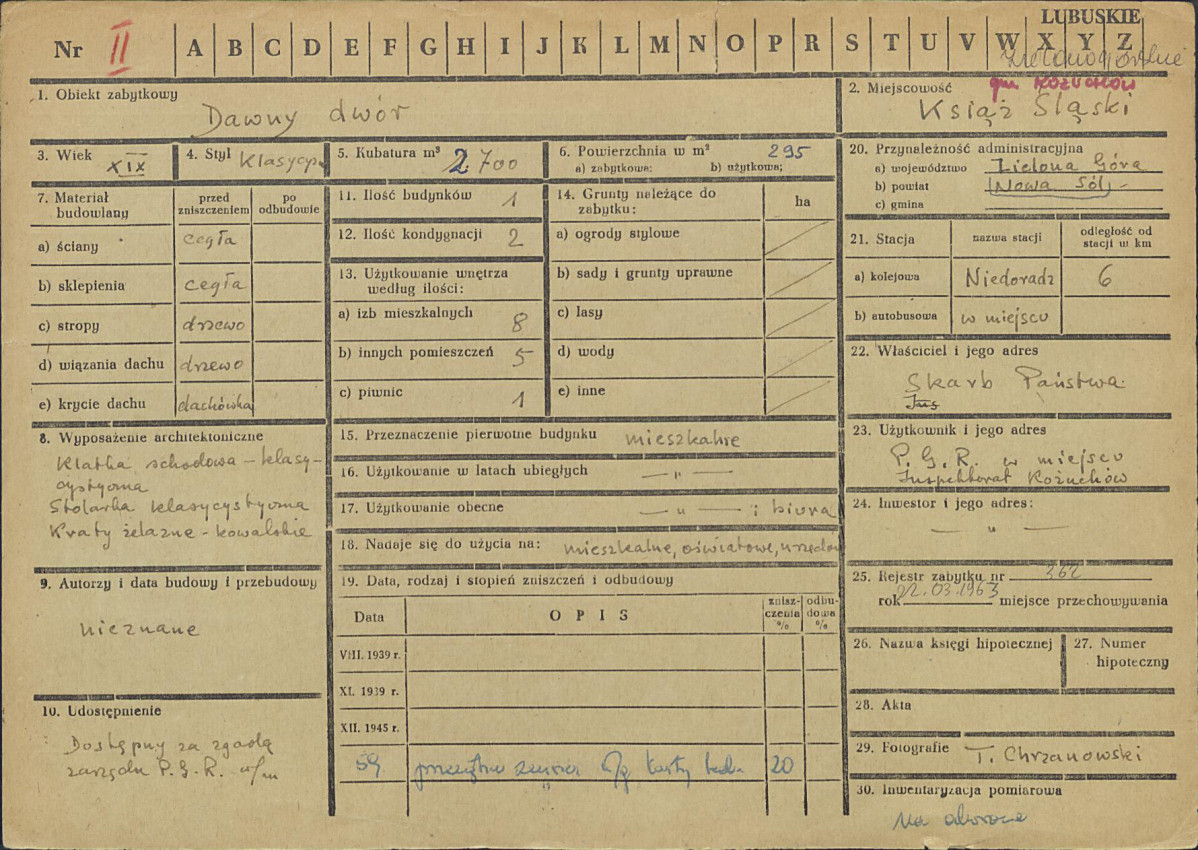 LUBUSKIE
Nr II A B C D E F G H I J K L M N O P R S T U V W X Y Z
zielonogórskie
gm KOŻUCHÓW
1. Obiekt zabytkowy
Dawny dwór
2. Miejscowość
Książ Śląski
3. Wiek XIX
4. Styl klasycyst
5. Kubatura m³ 2700
6. Powierzchnia w m² 295
a) zabytkowa; b) użytkowa;
7. Materiał budowlany
przed zniszczeniem
po odbudowie
a) ściany cegła
b) sklepienia cegła
c) stropy drzewo
d) wiązania dachu drzewo
e) krycie dachu dachówka
8. Wyposażenie architektoniczne
Klatka schodowa – klasy-
cystyczna
Stolarka klasycystyczna
Kraty żelazne - kowalskie
9. Autorzy i data budowy i przebudowy
nieznane
10. Udostępnienie
Dostępny za zgodą
zarządu P.G.R. w/m
11. Ilość budynków 1
12. Ilość kondygnacji 2
13. Użytkowanie wnętrza
według ilości:
a) izb mieszkalnych 8
b) innych pomieszczeń 5
c) piwnic 1
14. Grunty należące do
zabytku:
ha
a) ogrody stylowe
b) sady i grunty uprawne
c) lasy
d) wody
e) inne
15. Przeznaczenie pierwotne budynku mieszkalne
16. Użytkowanie w latach ubiegłych — „ —
17. Użytkowanie obecne — „ — i biura
18. Nadaje się do użycia na: mieszkalne, oświatowe, urzędow
19. Data, rodzaj i stopień zniszczeń i odbudowy
Data
OPIS
znisz-
czenia
%
odbu-
dowa
%
VIII. 1939 r.
XI. 1939 r.
XII. 1945 r.
59. 20
20. Przynależność administracyjna
a) województwo Zielona Góra
b) powiat Nowa Sól
c) gmina
21. Stacja
nazwa stacji
odległość od
stacji w km
a) kolejowa Niedoradz 6
b) autobusowa w miejscu
22. Właściciel i jego adres
Skarb Państwa
Ins
23. Użytkownik i jego adres
P.G.R. w miejscu
Inspektorat Kożuchów
24. Inwestor i jego adres:
— „ —
25. Rejestr zabytku nr 362
rok 22.03.1963 miejsce przechowywania
26. Nazwa księgi hipotecznej
27. Numer
hipoteczny
28. Akta
29. Fotografie T. Chrzanowski
30. Inwentaryzacja pomiarowa